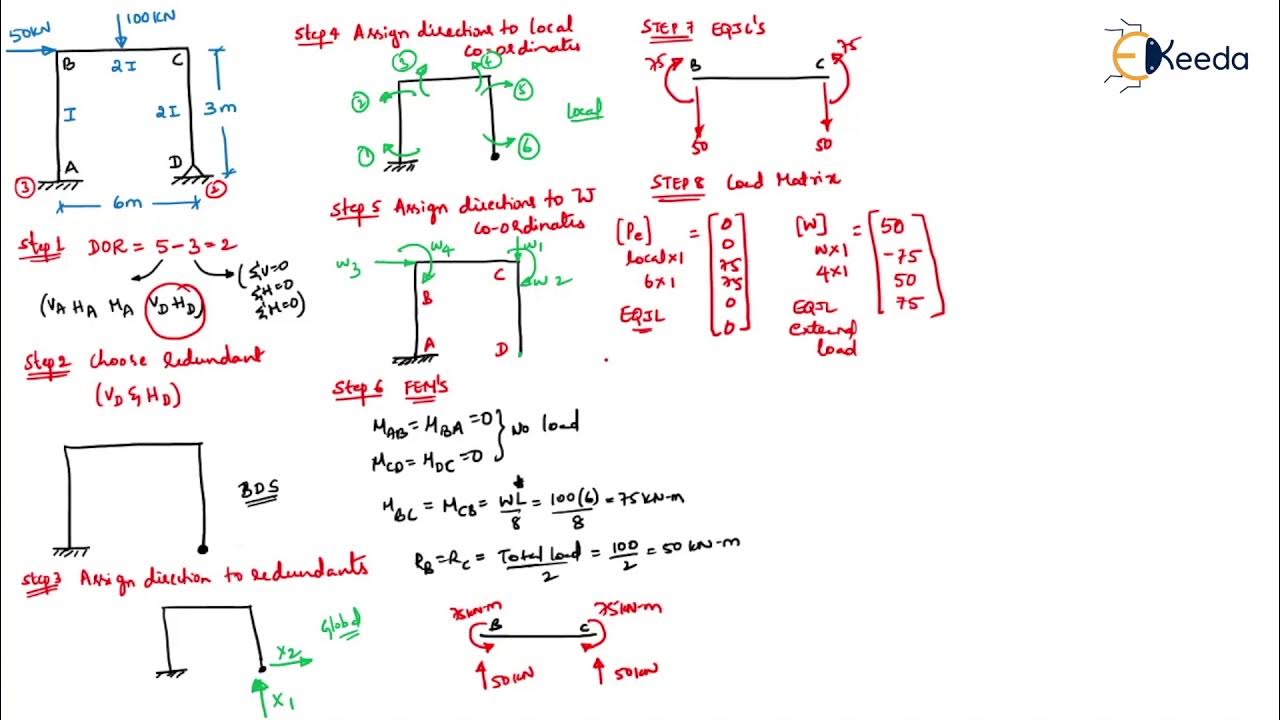 50KN
100KN
B
2I
C
I
2I
3m
A
D
3
2
6m
Step 1 DOR = 5 - 3 = 2
(VA HA MA VD HD)
(ΣV=0
ΣH=0
ΣM=0)
Step 2 Choose redundant
(VD & HD)
BDS
Step 3 Assign direction to redundants
Global
X2
X1
Step 4 Assign directions to local
co-ordinates
3
4
2
5
Local
1
6
Step 5 Assign directions to W
co-ordinates
W4
W1
W3
C
W2
B
A
D
Step 6 FEM's
MAB = MBA = 0
MCD = MDC = 0
No load
MBC = MCB = WL/8 = 100(6)/8 = 75 KN-m
RB = RC = Total load/2 = 100/2 = 50 KN-m
75KN-m
75KN-m
B
C
50KN
50KN
STEP 7 EQJL'S
75
B
C
75
50
50
STEP 8 Load Matrix
[Pe] = [0
0
75
75
0
0]
local×1
6×1
EQJL
[W] = [50
-75
50
75]
W×1
4×1
EQJL
external
load
EKeeda